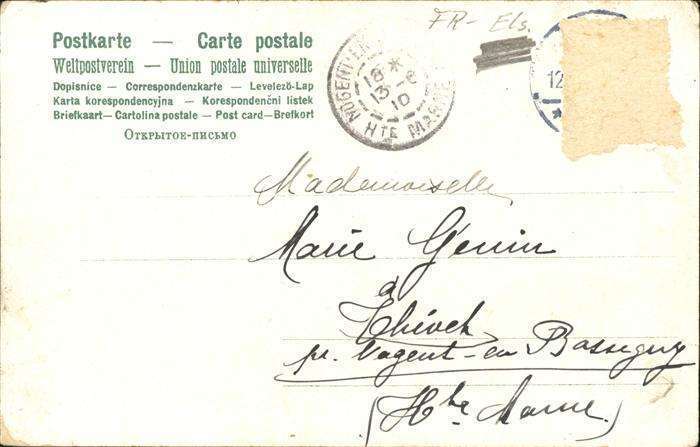 Postkarte — Carte postale
Weltpostverein — Union postale universelle
Dopisnice — Correspondenzkarte — Levelező-Lap
Karta korespondencyjna — Korespondenční listek
Briefkaart — Cartolina postale — Post card — Brefkort
Открытое-письмо
FR - Els.
NOGENT-EN
18*
13-8
10
HTE MARNE
12
Mademoiselle
Marie Genin
à
Thivet
pr. Nogent-en Bassigny
(Hte Marne)